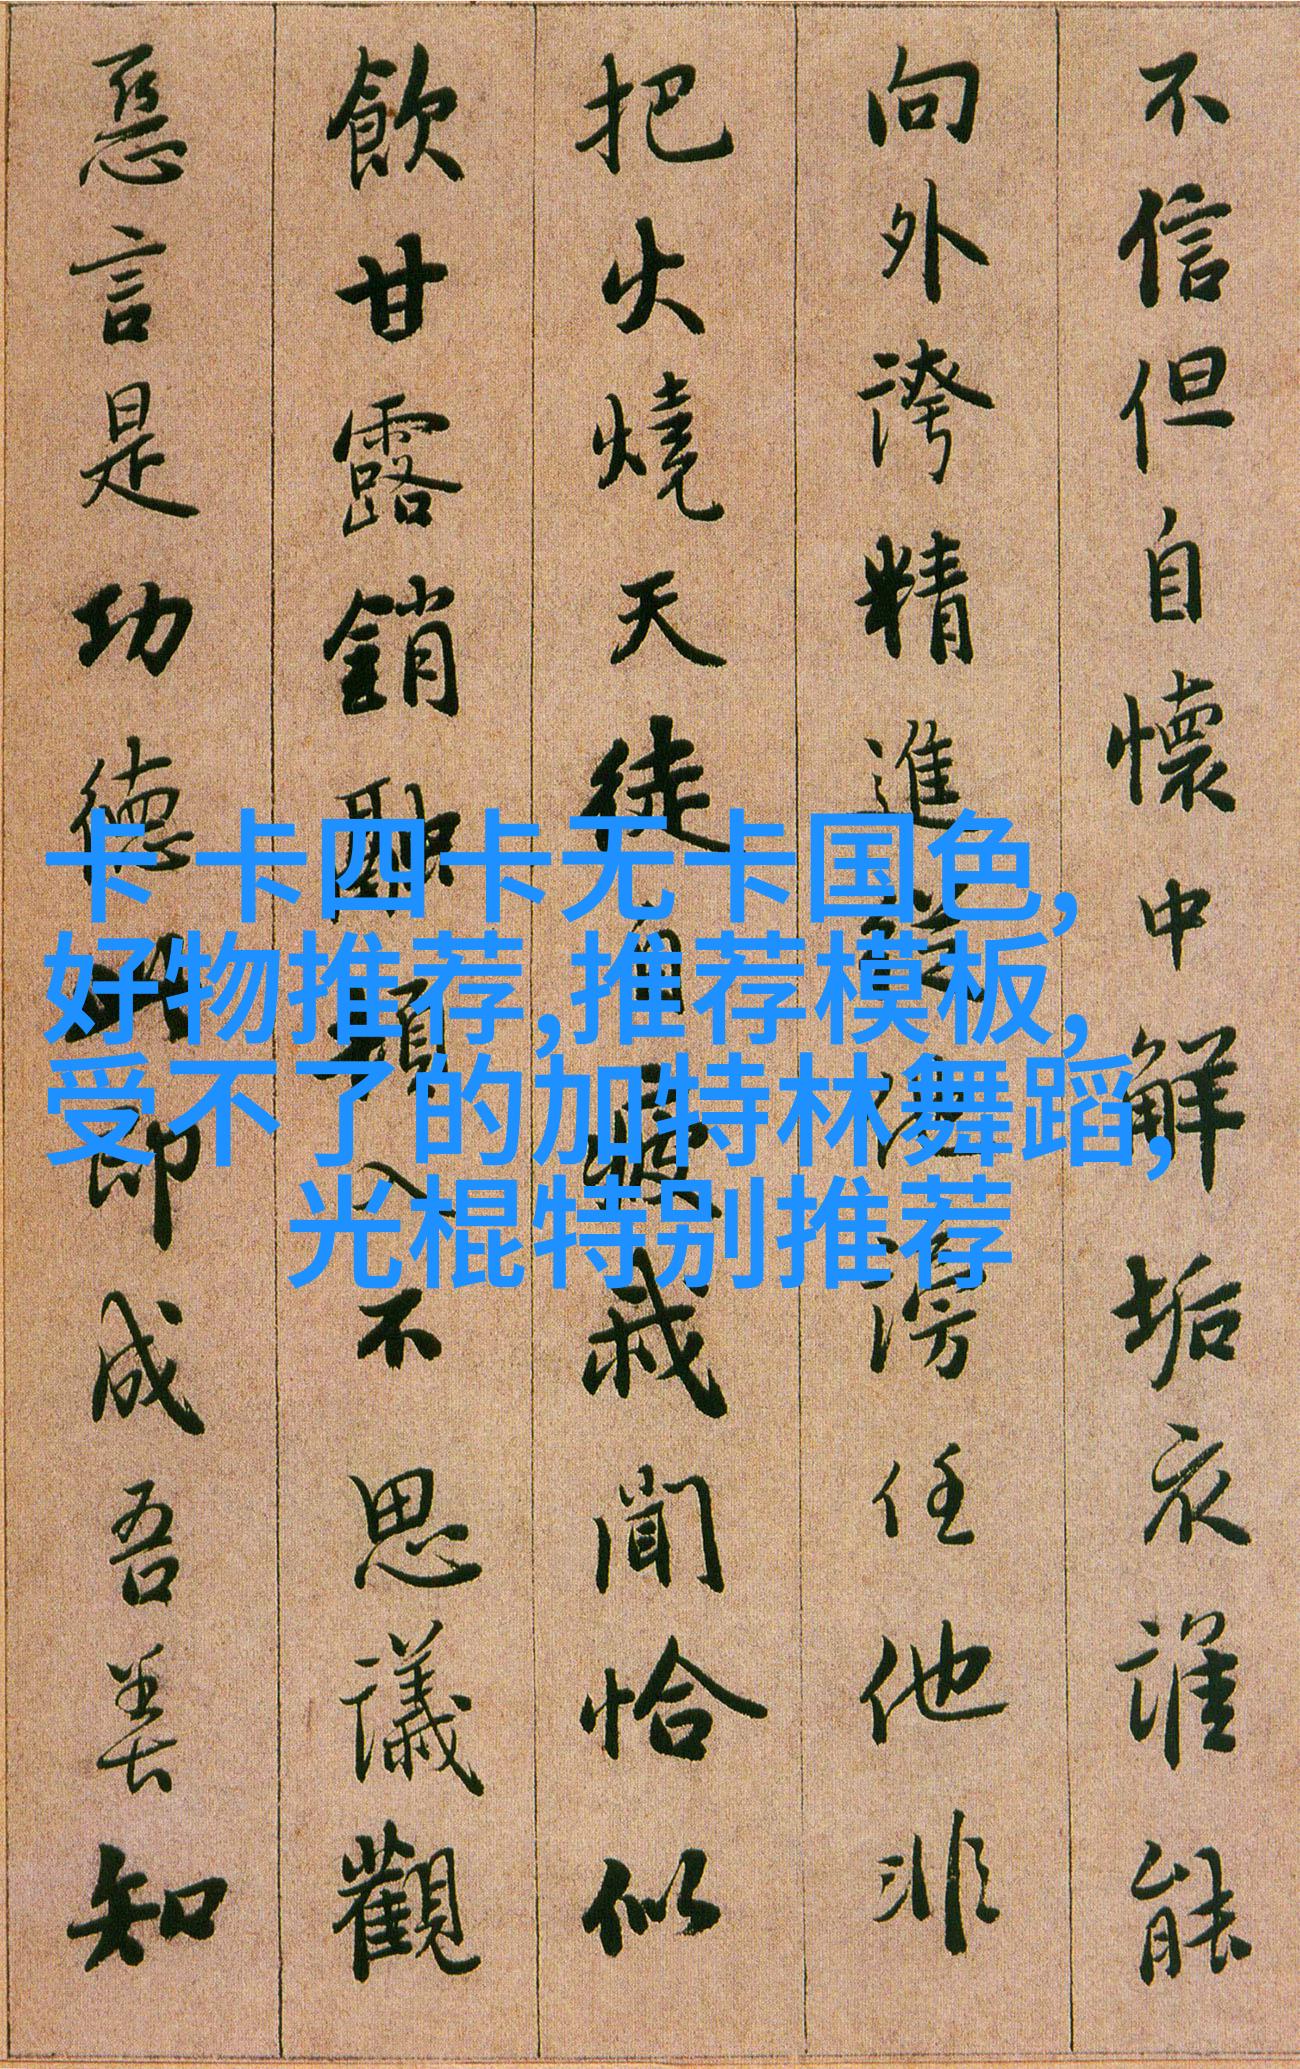 不信但自懷中解垢衣誰能
向外誇精進從他謗任他非
把火燒天徒自疲我聞恰似
飲甘露銷融頓入不思議觀
惡言是功德此即成吾善知
卡 卡四卡无卡国色,
好物推荐,推荐模板,
受不了的加特林舞蹈,
光棍特别推荐